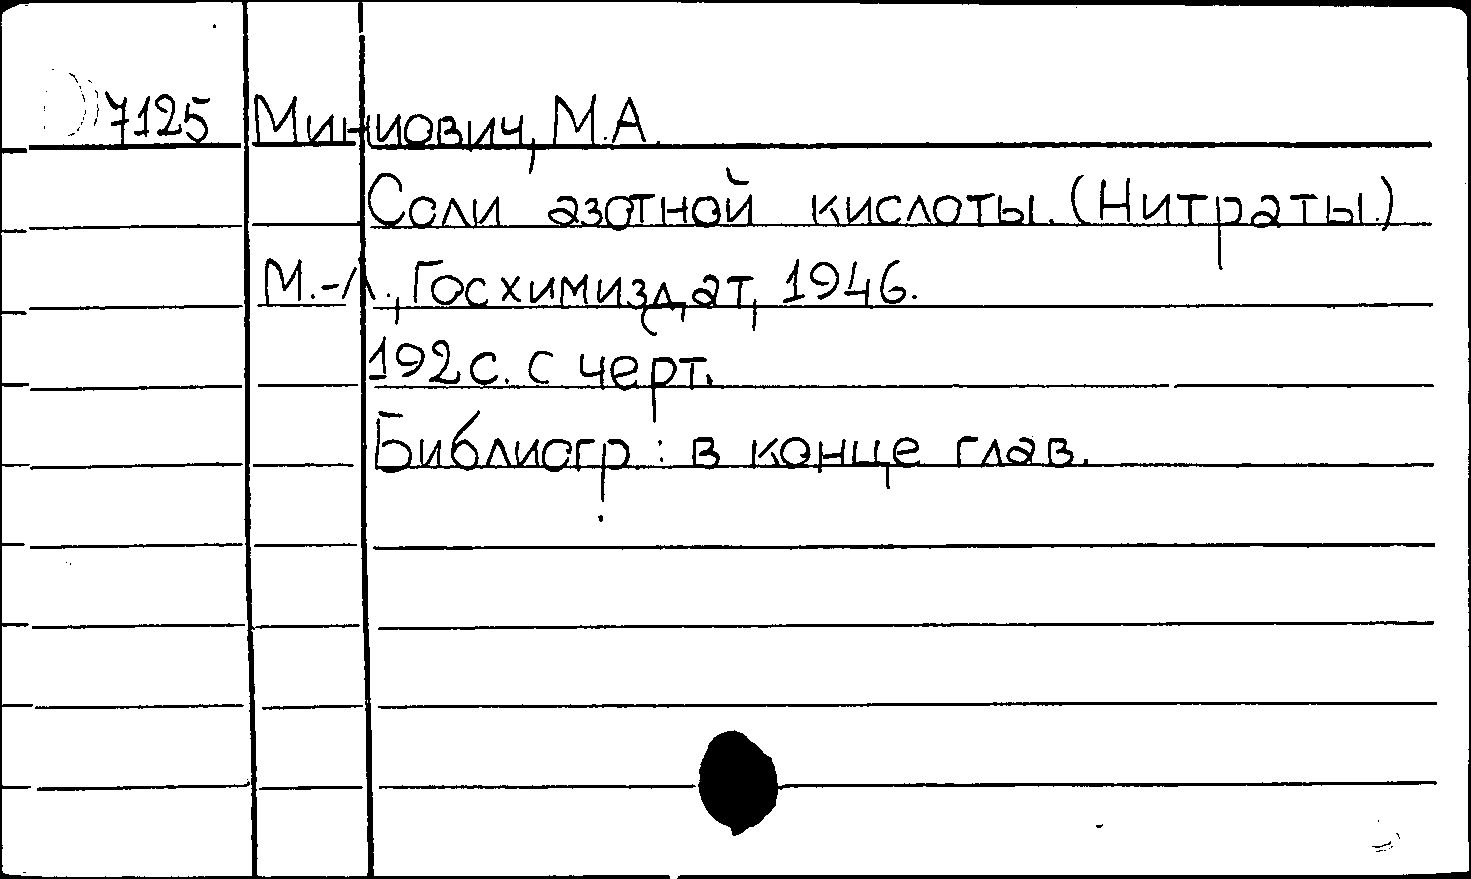 7125 Миниович, М.А.
Соли азотной кислоты. (Нитраты.)
М.-Л., Госхимиздат, 1946.
192 с. с черт.
Библиогр : в конце глав.